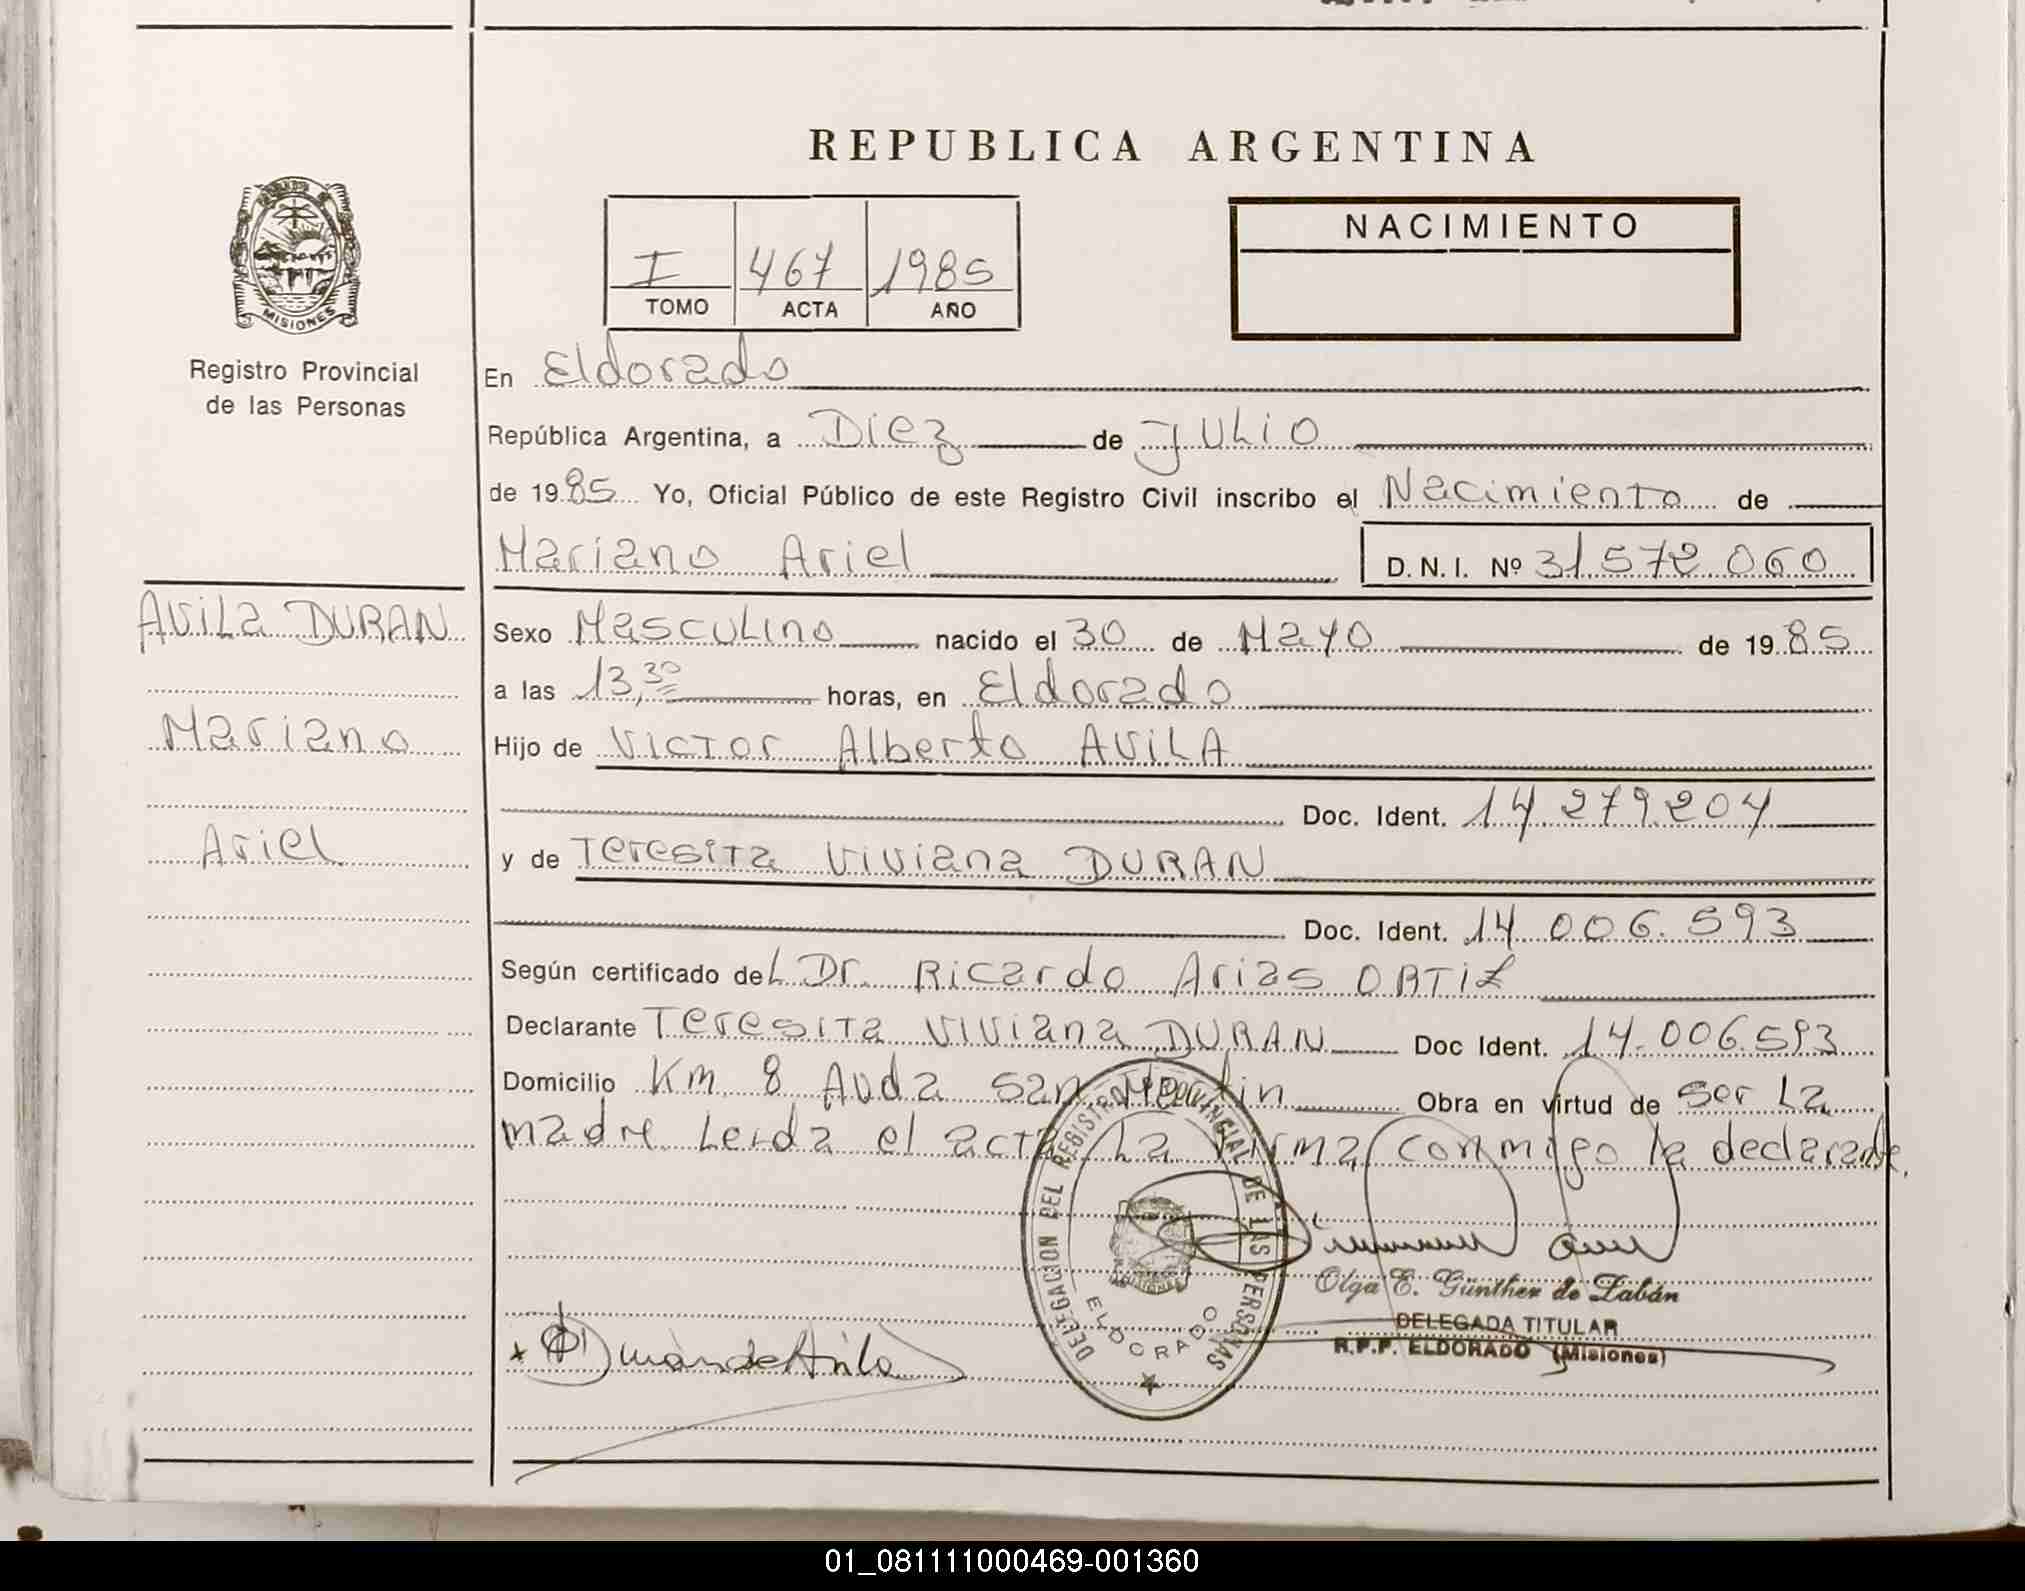 REPUBLICA ARGENTINA
MISIONES
Registro Provincial
de las Personas
I 467 1985
TOMO ACTA AÑO
NACIMIENTO
En Eldorado
República Argentina, a Diez de Julio
de 1985 Yo, Oficial Público de este Registro Civil inscribo el Nacimiento de
Mariano Ariel D.N.I. Nº 31.572.060
AVILA DURAN
Mariano
Ariel
Sexo Masculino nacido el 30 de Mayo de 1985
a las 13,30 horas, en Eldorado
Hijo de Victor Alberto AVILA
Doc. Ident. 14.279.204
y de Teresita Viviana DURAN
Doc. Ident. 14.006.593
Según certificado del Dr. Ricardo Arias ORTIZ
Declarante Teresita Viviana DURAN Doc Ident. 14.006.593
Domicilio Km. 8 Avda San Martin Obra en virtud de ser La
madre. Leida el acta La firma conmigo la declarante.
DELEGACION DEL REGISTRO PROVINCIAL DE LAS PERSONAS
ELDORADO
Olga E. Günther de Zabán
DELEGADA TITULAR
R.P.P. ELDORADO (Misiones)
01_081111000469-001360